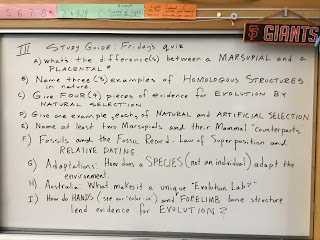 5 6 7 8
GIANTS
III STUDY GUIDE: Fridays quiz
A) Whats the difference(s) between a MARSUPIAL and a
PLACENTAL?
B) Name three (3) examples of HOMOLOGOUS STRUCTURES
in nature.
C) Give FOUR (4) pieces of evidence for EVOLUTION BY
NATURAL SELECTION.
D) Give one example, each, of NATURAL and ARTIFICIAL SELECTION
E) Name at least two Marsupials and their Mammal "counterparts"
F) Fossils and the Fossil Record. Law of Superposition and
RELATIVE DATING
G) Adaptations: How does a SPECIES (not an individual) adapt the
environment.
H) Australia: What makes it a unique "Evolution Lab?"
I) How do HANDS (see our "color-in") and FORELIMB bone structure
lend evidence for EVOLUTION?